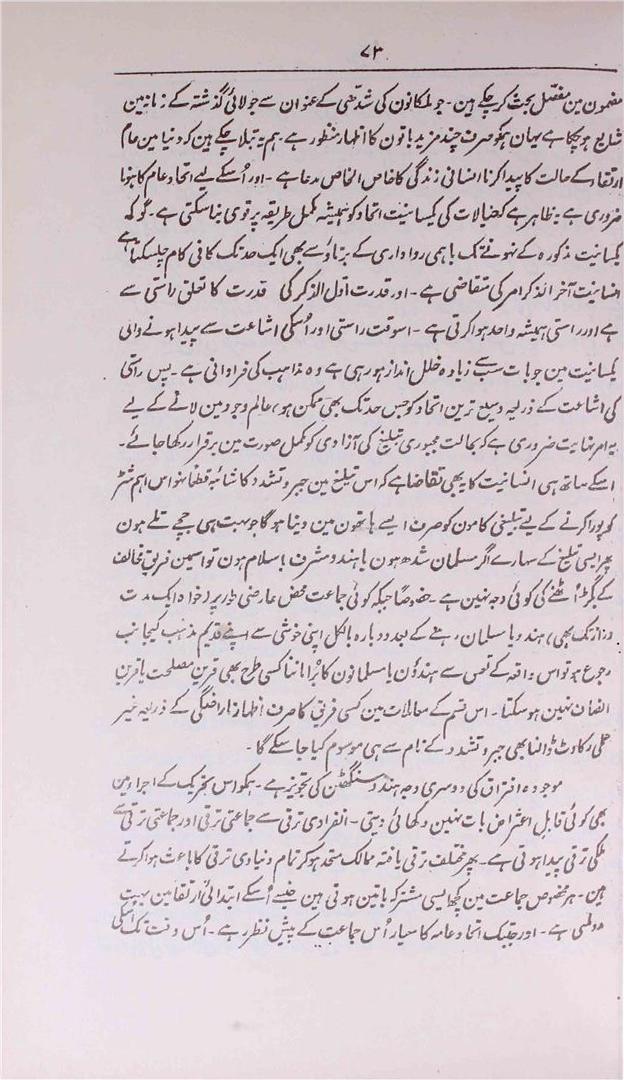 ۷۳
مضمون مین مفصّل بحث کر چکے ہین۔ جو ملکانون کی شدّھی کے عنوان سے جولائی گذشتہ کے زمانہ مین
شایع ہو چکا ہے یہان ہمکو صرف چند مزید باتون کا اظہار منظور ہے۔ ہم یہ بتلا چکے ہین کہ دنیا مین عام
ارتقاء کے حالت کا پیدا کرنا انسانی زندگی کا خاص الخاص مدعا ہے۔ اور اُسکے لیے اتحاد عام کا ہونا
ضروری ہے یہ ظاہر ہے کہ خیالات کی یکسانیت اتحاد کو ہمیشہ مکمل طریقہ پر قوی بنا سکتی ہے۔ گو کہ
یکسانیت مذکورہ کے نہونے تک باہمی رواداری کے برتاؤ سے بھی ایک حد تک کافی کام چلسکتا ہے
انسانیت آخر الذکر امر کی متقاضی ہے۔ اور قدرت اوّل الذکر کی قدرت کا تعلق راستی سے
ہے اور راستی ہمیشہ واحد ہوا کرتی ہے۔ اسوقت راستی اور اُسکی اشاعت سے پیدا ہونے والی
یکسانیت مین جو بات سب سے زیادہ خلل انداز ہو رہی ہے وہ مذاہب کی فراوانی ہے۔ پس راستی
کی اشاعت کے ذریعہ وسیع ترین اتحاد کو جس حد تک بھی ممکن ہو، عالم وجود مین لانے کے لیے
یہ امر نہایت ضروری ہے کہ بحالت مجبوری تبلیغ کی آزادی کو مکمل صورت مین برقرار رکھا جائے۔
اسکے ساتھ ہی انسانیت کا یہ بھی تقاضا ہے کہ اس تبلیغ مین جبر و تشدد کا شائبہ قطعاً نہو اس اہم شرط
کو پورا کرنے کے لیے تبلیغی کامون کو صرف ایسے ہاتھون مین دینا ہوگا جو بہت ہی جچے تلے ہون
پھر ایسی تبلیغ کے سہارے اگر مسلمان شدھ ہون یا ہندو مشرف باسلام ہون تو اسمین فریق مخالف
کے بگڑ اُٹھنے کی کوئی وجہ نہین ہے۔ خصوصاً جبکہ کوئی جماعت محض عارضی طور پر (خواہ ایک مدت
دراز تک بھی) ہندو یا مسلمان رہنے کے بعد دوبارہ بالکل اپنی خوشی سے اپنے قدیم مذہب کیجانب
رجوع ہو تو اس واقعہ کے تعلق سے ہندؤن یا مسلمانون کا بُرا ماننا کسی طرح بھی قرین مصلحت یا قرین
انصاف نہین ہو سکتا۔ اس قسم کے معاملات مین کسی فریق کا صرف اظہار ناراضگی کے ذریعہ غیر
عملی رکاوٹ ڈالنا بھی جبر و تشدد کے نام سے ہی موسوم کیا جا سکے گا۔
موجودہ افتراق کی دوسری وجہ ہندو سنگٹھن کی تجویز ہے۔ ہمکو اس تحریک کے اجراء مین
بھی کوئی قابل اعتراض بات نہین دکھائی دیتی۔ انفرادی ترقی سے جماعتی ترقی اور جماعتی ترقی سے
ملکی ترقی پیدا ہوتی ہے۔ پھر مختلف ترقی یافتہ ممالک متحد ہو کر تمام دنیاوی ترقی کا باعث ہوا کرتے
ہین۔ ہر مخصوص جماعت مین کچھ ایسی مشترکہ باتین ہوتی ہین جنسے اُسکے ابتدائی ارتقا مین بہت
مدد ملتی ہے۔ اور جبتک اتحاد عامہ کا معیار اُس جماعت کے پیش نظر رہے۔ اُس وقت تک اُسکی